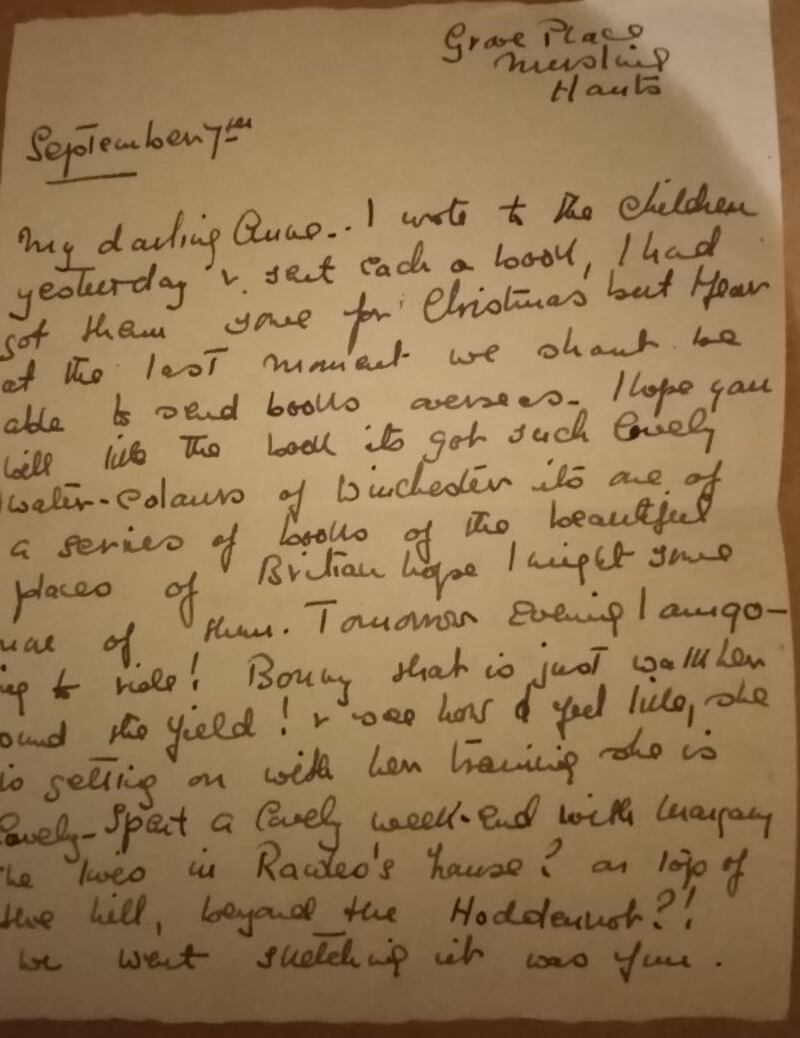 Grove Place
Nursling
Hants
September 7th
My darling Anne.. I wrote to the children
yesterday & sent each a book, I had
got them some for Christmas but I fear
at the last moment we shant be
able to send books overseas- I hope you
will like the book its got such lovely
water-colours of Winchester its one of
a series of books of the beautiful
places of Britian hope I might some
more of them. Tomorrow Evening I am go-
ing to ride! Bonny that is just walk her
ound the field! & see how I feel like, she
is getting on with her training she is
lovely- Spent a lovely week-end with Margary
she lives in house? on top of
the hill, beyond the ?!
we went sketching it was fun.